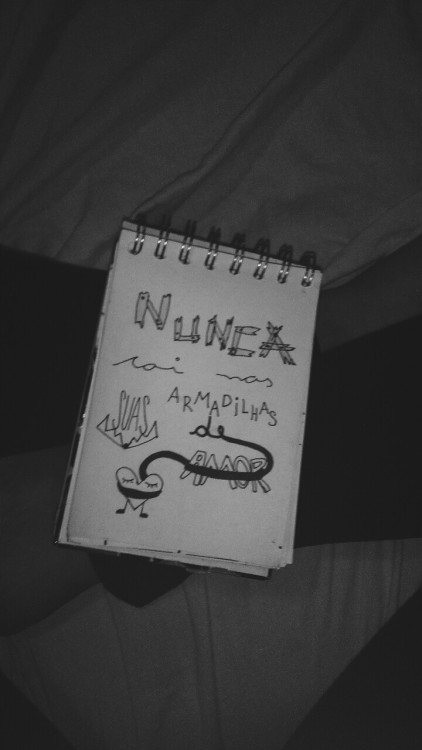 NUNCA
cai nas
SUAS ARMADiLHAS
de
AMOR